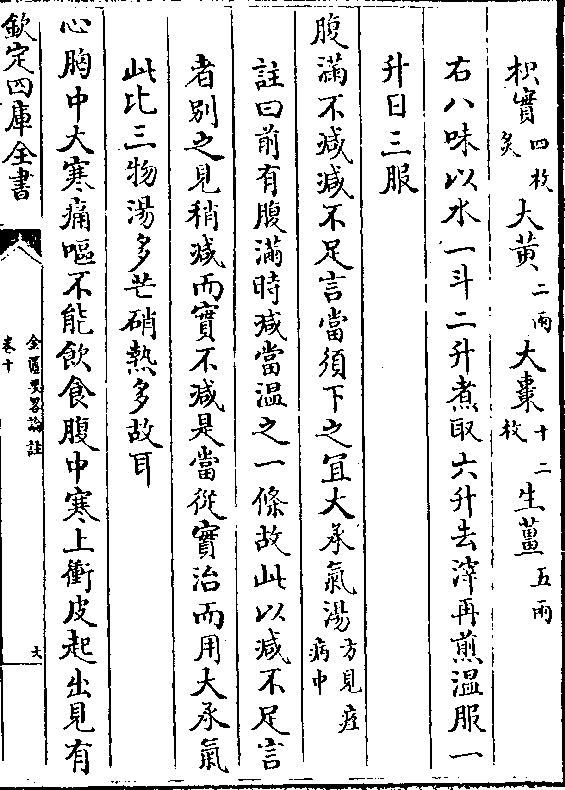 枳實四枚炙大黃二兩大棗十二枚生薑五兩
右八味以水一斗二升煮取六升去滓再煎温服一
升日三服
腹滿不減減不足言當須下之宜大承氣湯方見痓病中
註曰前有腹滿時減當温之一條故此以減不足言
者別之見稍減而實不減是當從實治而用大承氣
此比三物湯多芒硝熱多故耳
心胸中大寒痛嘔不能飲食腹中寒上衝皮起出見有
欽定四庫全書
金匱要畧論註
卷十
大